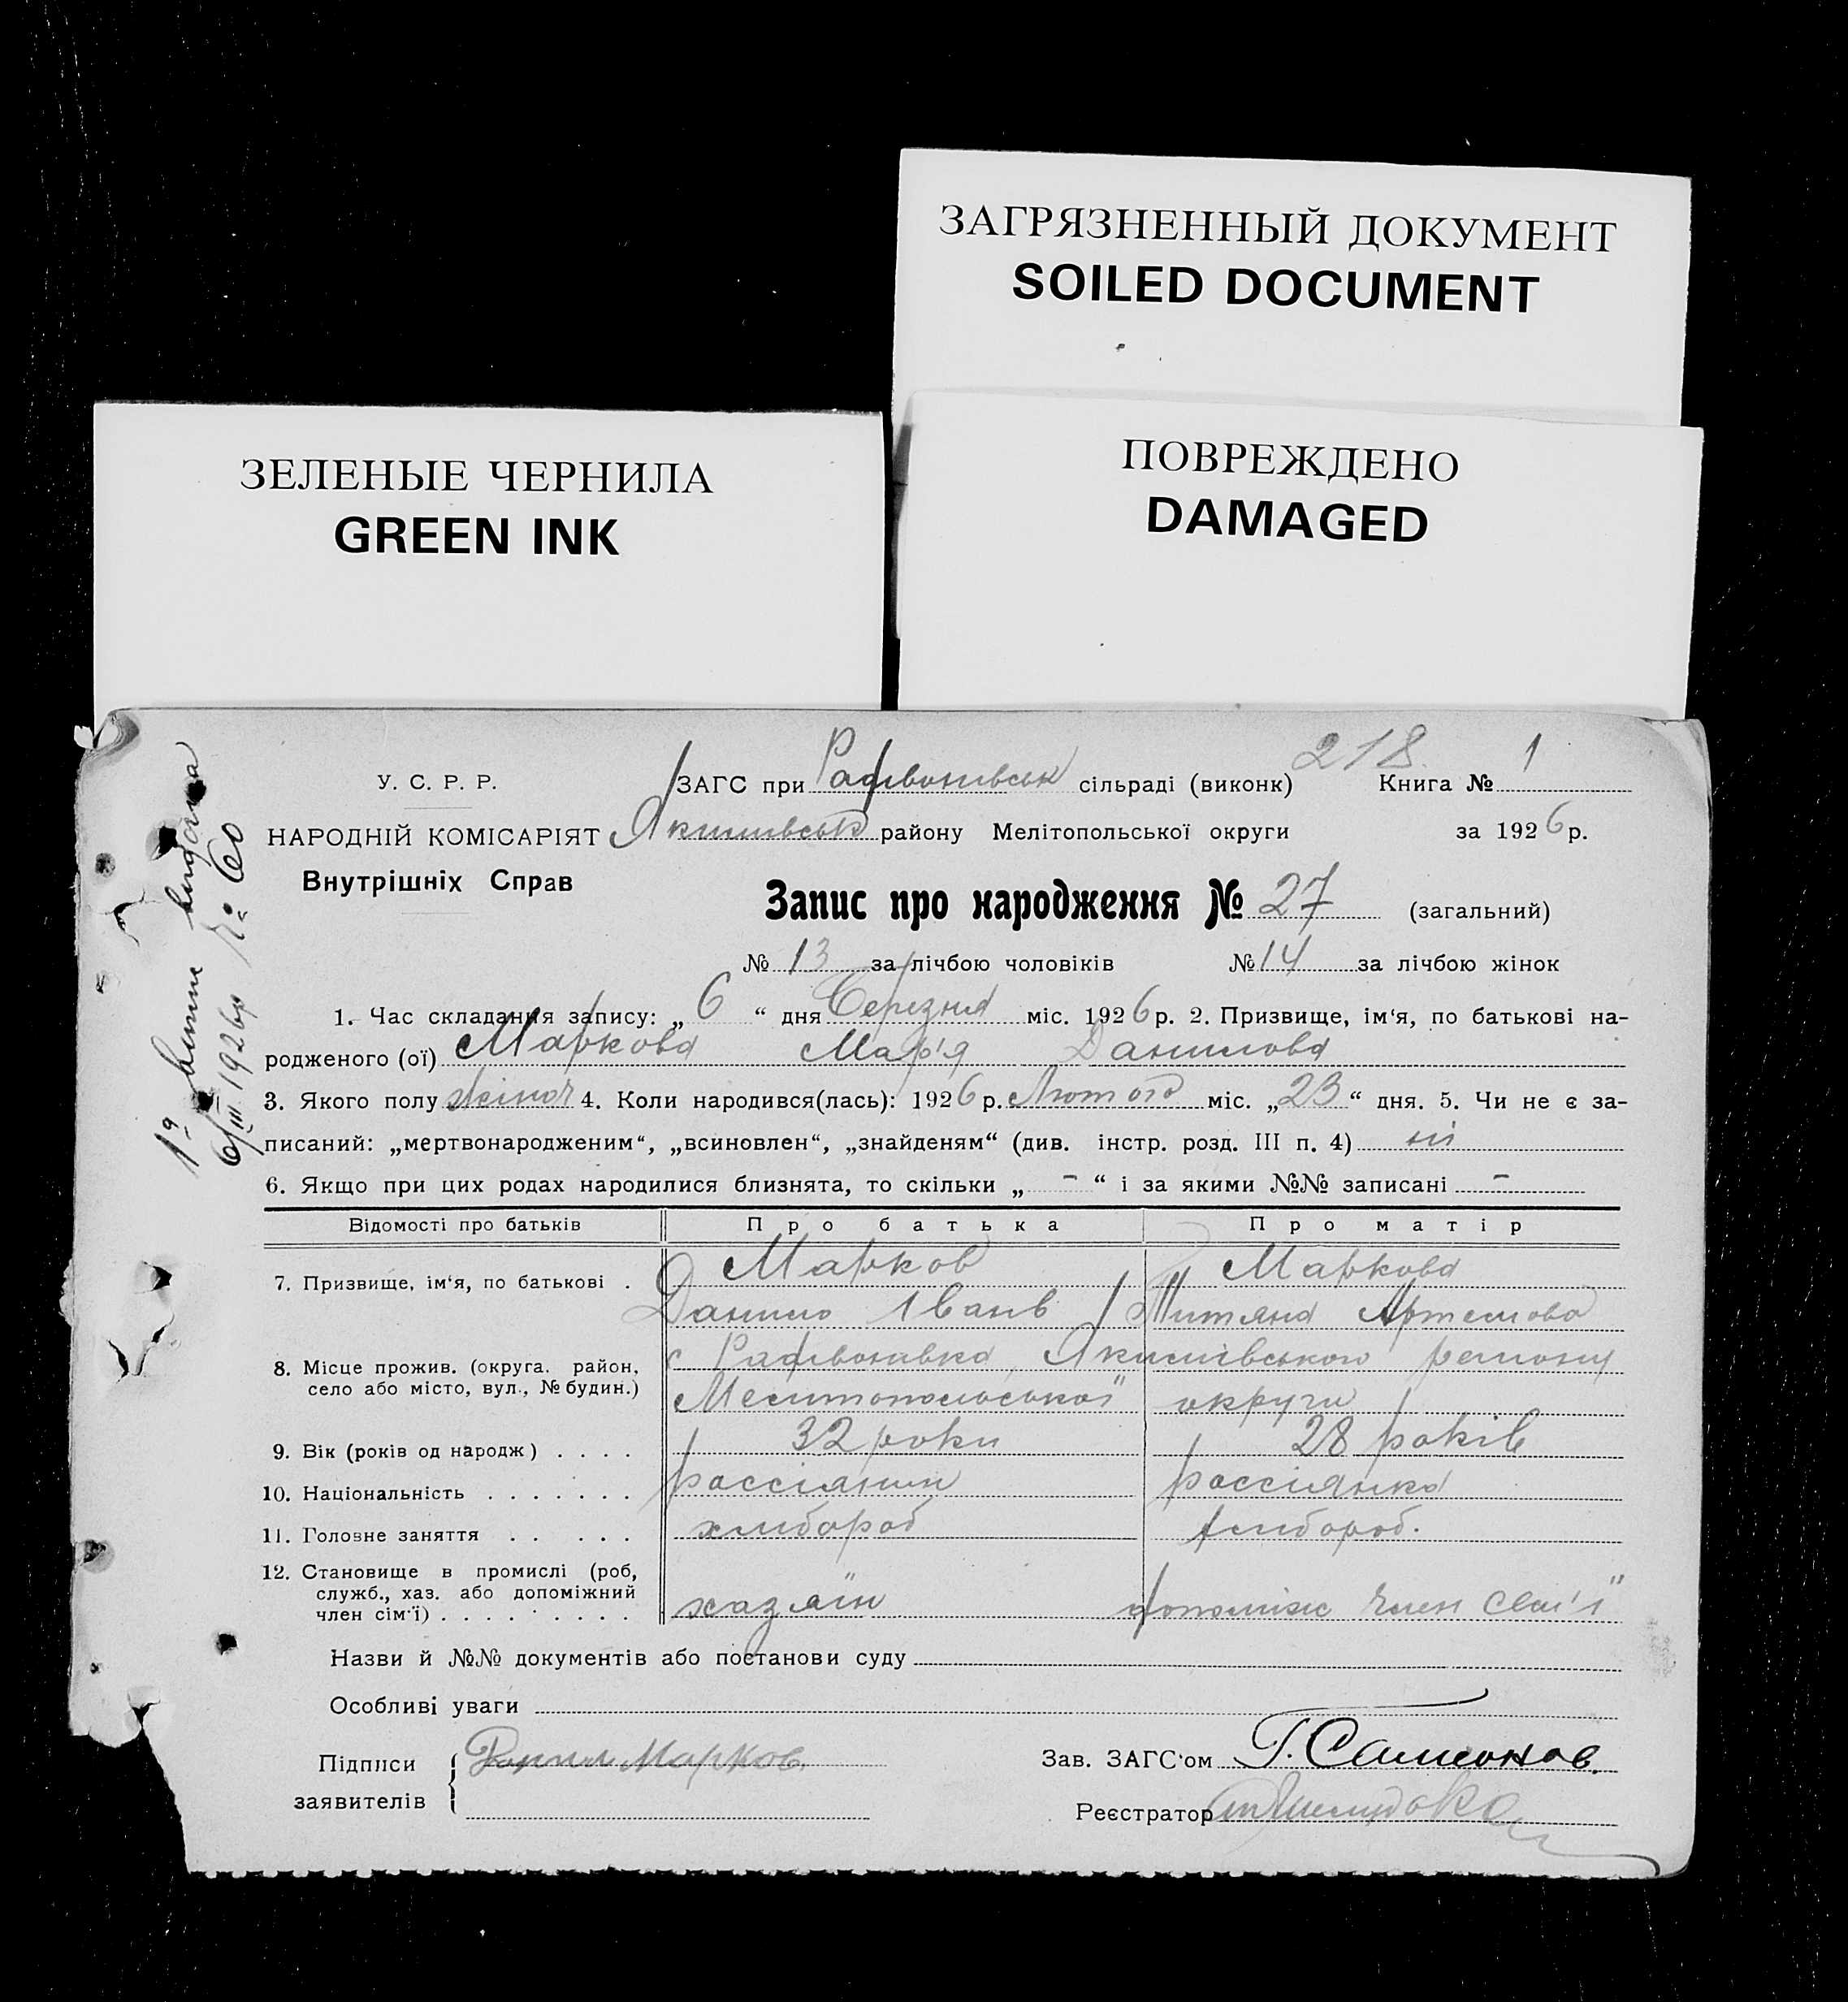 ЗАГРЯЗНЕННЫЙ ДОКУМЕНТ
SOILED DOCUMENT
ЗЕЛЕНЫЕ ЧЕРНИЛА
GREEN INK
ПОВРЕЖДЕНО
DAMAGED
218
У. С. Р. Р. ЗАГС при Радивонівськ сільраді (виконк) Книга № 1
НАРОДНІЙ КОМІСАРІЯТ Якимівськ району Мелітопольської округи за 1926 р.
Внутрішніх Справ
Запис про народження № 27 (загальний)
№ 13 за лічбою чоловіків № 14 за лічбою жінок
1. Час складання запису: „ 6 “ дня Березня міс. 1926 р. 2. Призвище, ім‘я, по батькові на-
родженого (ої) Маркова Мар'я Данилова
3. Якого полу жіноч 4. Коли народився(лась): 1926 р. Лютого міс. „ 23 “ дня. 5. Чи не є за-
писаний: „мертвонародженим“, „всиновлен“, „знайденям“ (див. інстр. розд. III п. 4) ні
6. Якщо при цих родах народилися близнята, то скільки „ - “ і за якими №№ записані -
Відомості про батьків Про батька Про матір
7. Призвище, ім‘я, по батькові . Марков Маркова
Данило Іванів Титяна Артемова
8. Місце прожив. (округа. район, с Радивонівка, Якимівського району
село або місто, вул., № будин.) Мелитопольської округи
9. Вік (років од народж) . . . . 32 роки 28 років
10. Національність . . . . . . . россіянин россіянка
11. Головне заняття . . . . . хлибороб хлибороб.
12. Становище в промислі (роб,
служб., хаз. або допоміжний
член сім‘ї) . . . . . . . . . хазяїн допоміж член сем'ї
Назви й №№ документів або постанови суду
Особливі уваги
Підписи Данил Марков. Зав. ЗАГС‘ом Г. Самсонов.
заявителів Реєстратор
1а випис видана
6/III 1926 р № 60